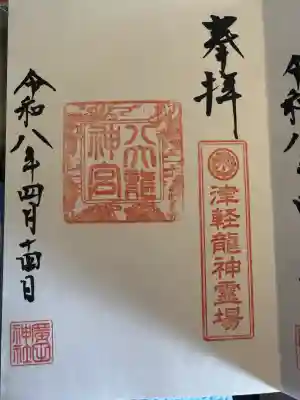 奉拝
津軽龍神霊場
八大龍
神宮
令和八年四月十四日
廣田
神社
令和八